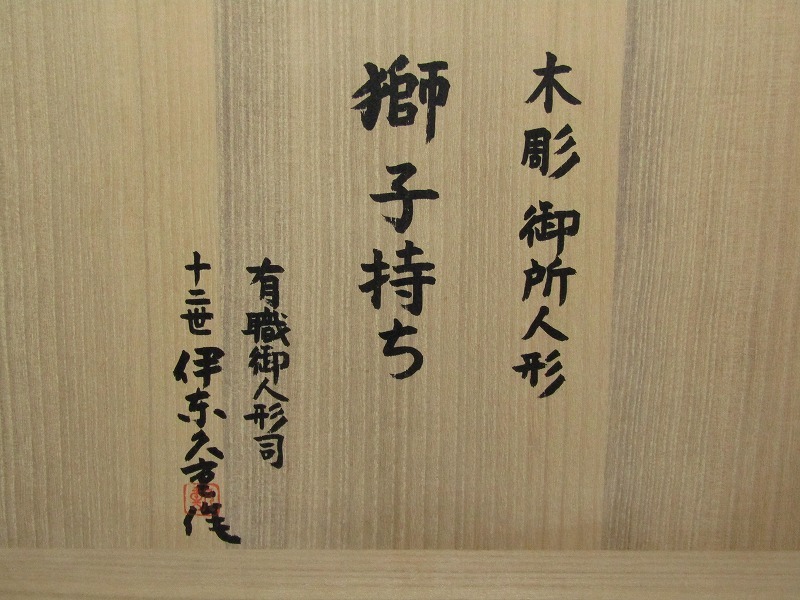 木彫 御所人形
獅子持ち
有職御人形司
十二世 伊東久重作